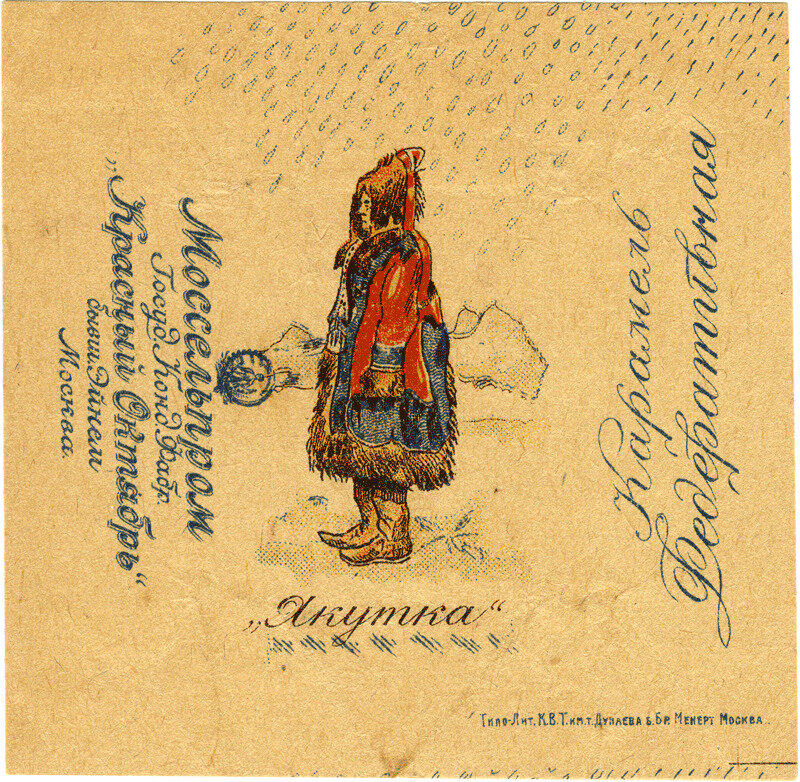 Моссельпром
Госуд. Конд. Фабр.
„Красный Октябрь“
бывш. Эйнем
Москва
„Якутка“
Карамель
Федеративная
Типо-Лит. К.В.Т. им. т. Дунаева б. Бр. Менерт Москва.